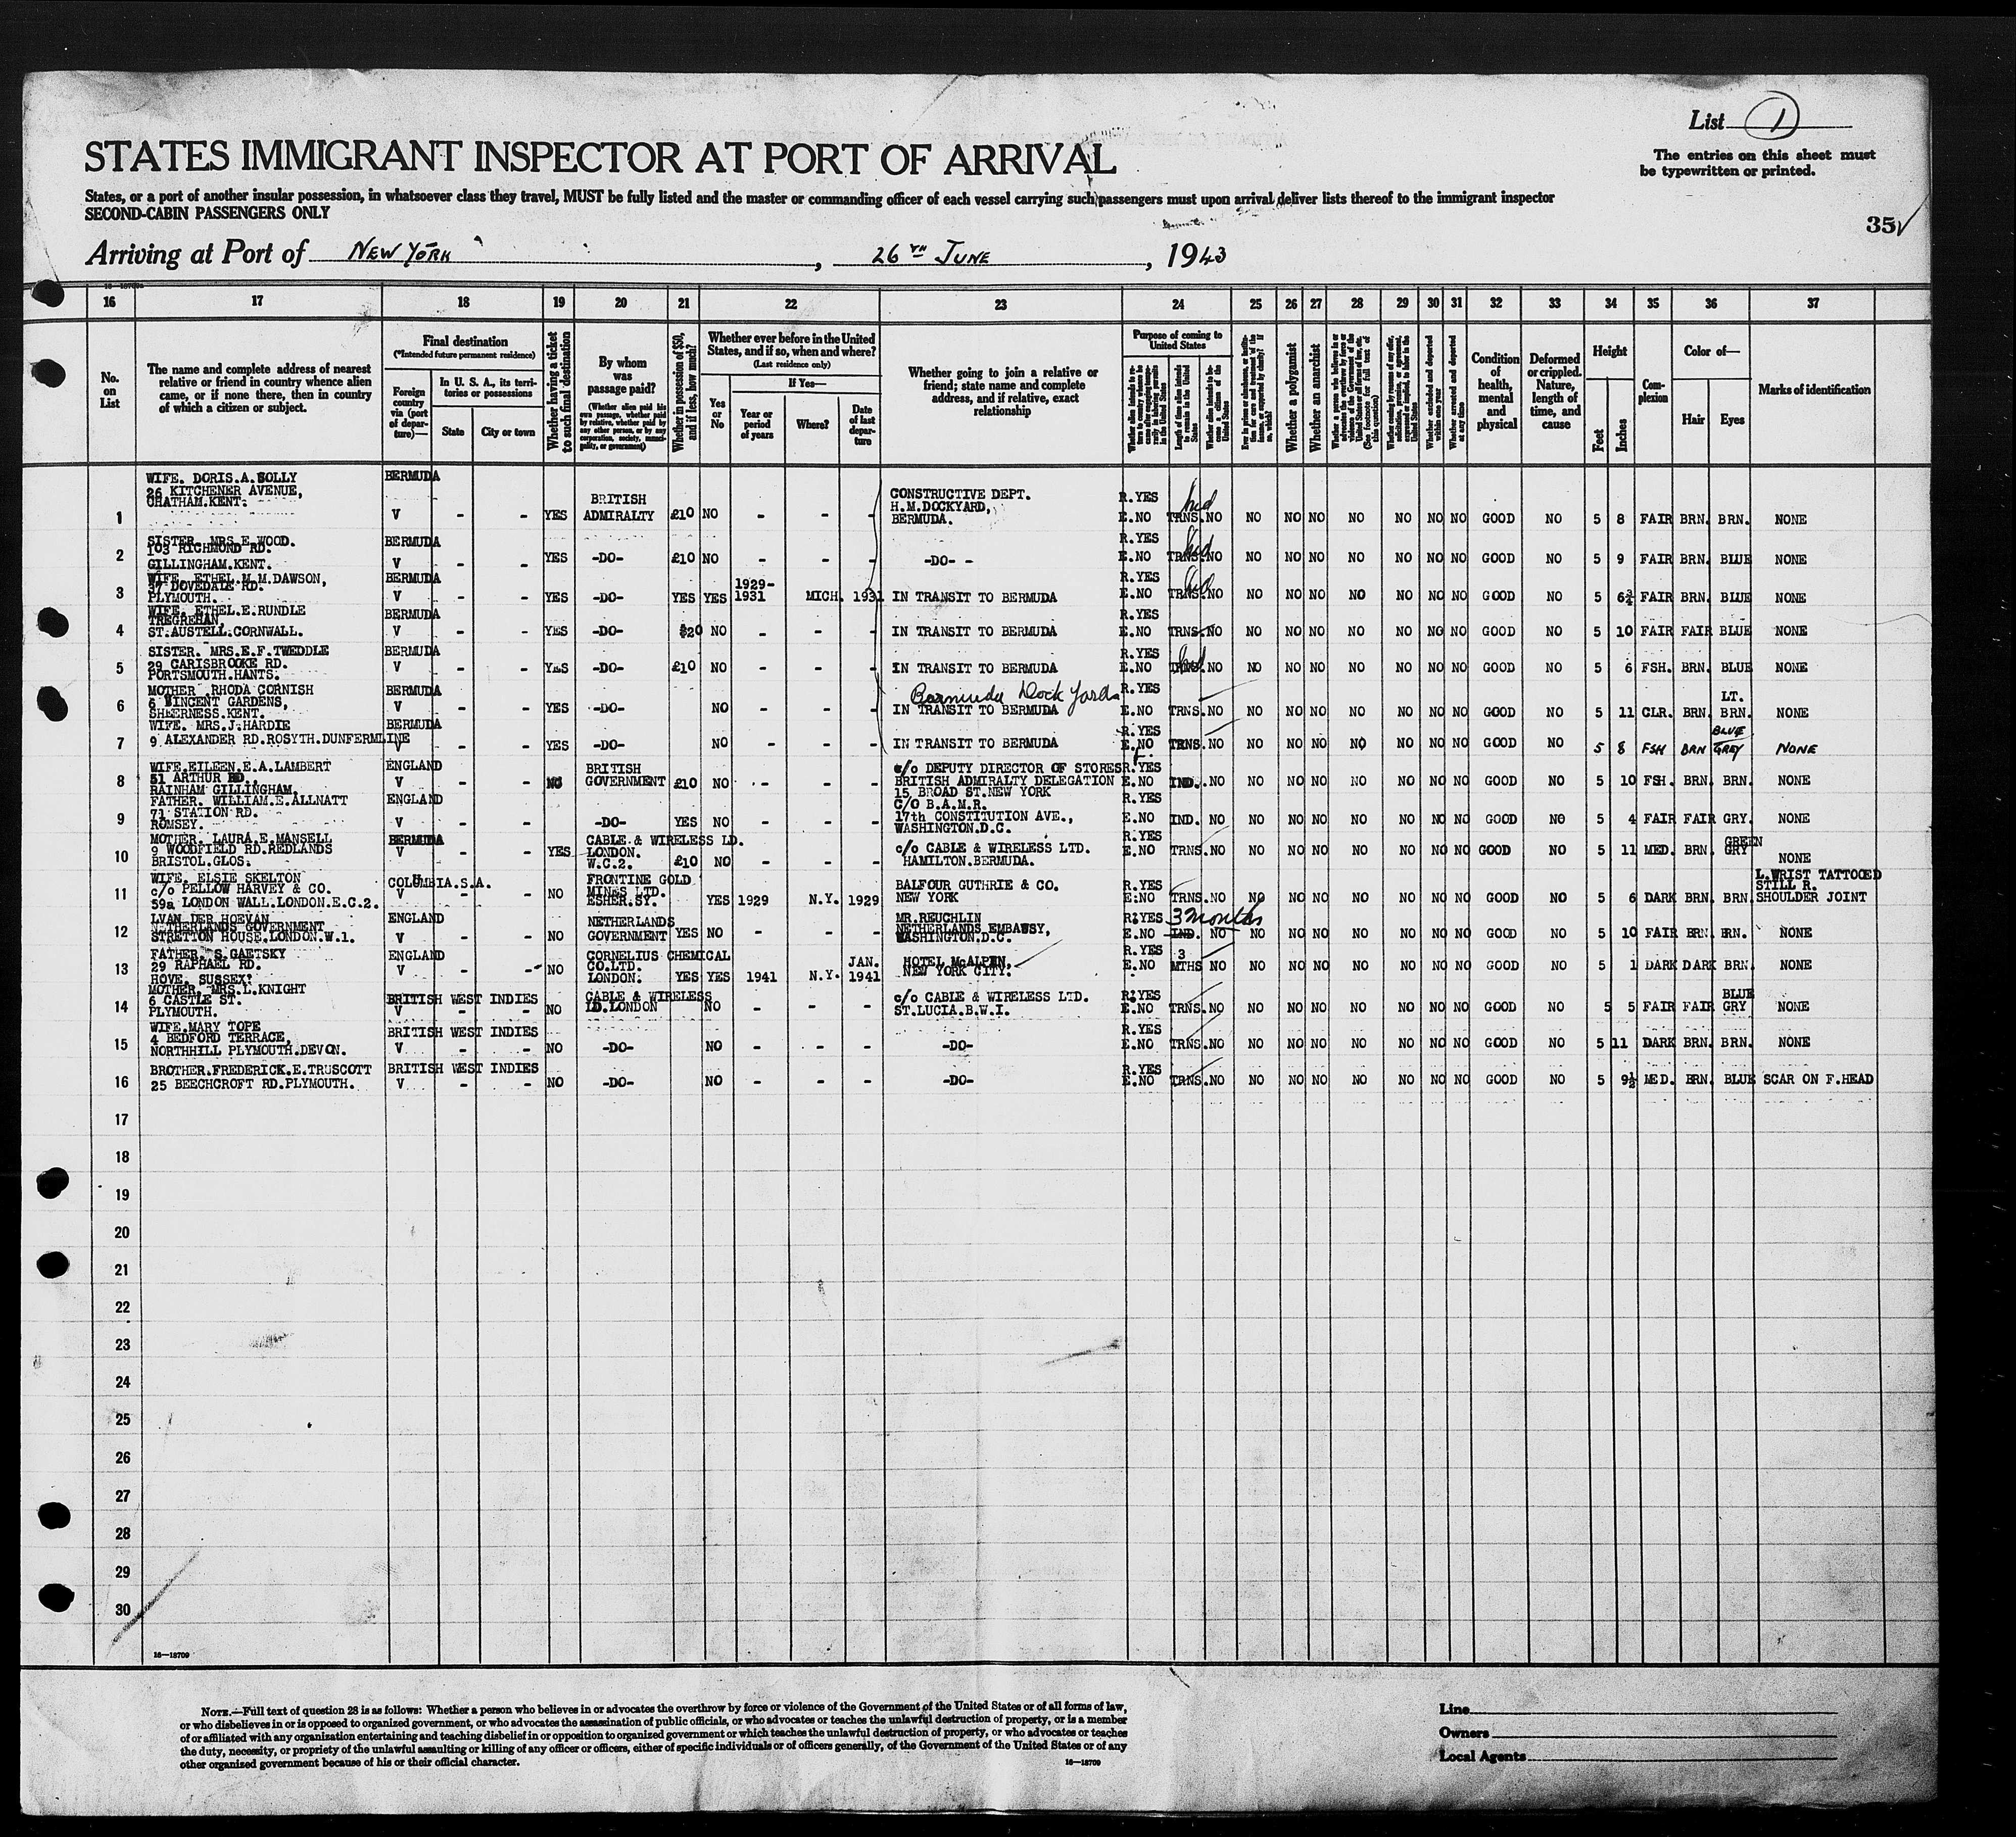 List 1
The entries on this sheet must
be typewritten or printed.
STATES IMMIGRANT INSPECTOR AT PORT OF ARRIVAL
States, or a port of another insular possession, in whatsoever class they travel, MUST be fully listed and the master or commanding officer of each vessel carrying such passengers must upon arrival deliver lists thereof to the immigrant inspector
SECOND-CABIN PASSENGERS ONLY
35
Arriving at Port of NEW YORK, 26TH JUNE, 1943
16 17 18 19 20 21 22 23 24 25 26 27 28 29 30 31 32 33 34 35 36 37
No. on List
The name and complete address of nearest relative or friend in country whence alien came, or if none there, then in country of which a citizen or subject.
Final destination
(*Intended future permanent residence)
Foreign country via (port of departure)—
In U. S. A., its territories or possessions
State
City or town
Whether having a ticket to such final destination
By whom was passage paid?
(Whether alien paid his own passage, whether paid by relative, whether paid by any other person, or by any corporation, society, municipality, or government)
Whether in possession of $50, and if less, how much?
Whether ever before in the United States, and if so, when and where?
(Last residence only)
Yes or No
If Yes—
Year or period of years
Where?
Date of last departure
Whether going to join a relative or friend; state name and complete address, and if relative, exact relationship
Purpose of coming to United States
Length of time alien intends to remain in the United States
Whether alien intends to become a citizen of the United States
Whether a polygamist
Whether an anarchist
(See footnote for full text of this question)
Whether excluded and deported within one year
Whether arrested and deported at any time
Condition of health, mental and physical
Deformed or crippled. Nature, length of time, and cause
Height
Feet
Inches
Complexion
Color of—
Hair
Eyes
Marks of identification
1 WIFE. DORIS.A.SOLLY 26 KITCHENER AVENUE, CHATHAM.KENT. BERMUDA V - - YES BRITISH ADMIRALTY £10 NO - - - CONSTRUCTIVE DEPT. H.M.DOCKYARD, BERMUDA. R.YES E.NO TRNS. NO NO NO NO NO NO NO NO GOOD NO 5 8 FAIR BRN. BRN. NONE
2 SISTER. MRS.E.WOOD. 103 RICHMOND RD. GILLINGHAM.KENT. BERMUDA V - - YES -DO- £10 NO - - - -DO- - R.YES E.NO TRNS. NO NO NO NO NO NO NO NO GOOD NO 5 9 FAIR BRN. BLUE NONE
3 WIFE. ETHEL.M.M.DAWSON, 37 DOVEDALE RD. PLYMOUTH. BERMUDA V - - YES -DO- YES YES 1929-1931 MICH. 1931 IN TRANSIT TO BERMUDA R.YES E.NO TRNS. NO NO NO NO NO NO NO NO GOOD NO 5 6¾ FAIR BRN. BLUE NONE
4 WIFE. ETHEL.E.RUNDLE TREGREHAN, ST.AUSTELL.CORNWALL. BERMUDA V - - YES -DO- $20 NO - - - IN TRANSIT TO BERMUDA R.YES E.NO TRNS. NO NO NO NO NO NO NO NO GOOD NO 5 10 FAIR FAIR BLUE NONE
5 SISTER. MRS.E.F.TWEDDLE 29 CARISBROOKE RD. PORTSMOUTH.HANTS. BERMUDA V - - YES -DO- £10 NO - - - IN TRANSIT TO BERMUDA R.YES E.NO TRNS. NO NO NO NO NO NO NO NO GOOD NO 5 6 FSH. BRN. BLUE NONE
6 MOTHER. RHODA CORNISH 6 VINCENT GARDENS, SHEERNESS.KENT. BERMUDA V - - YES -DO- NO - - - Bermuda Dock Yard IN TRANSIT TO BERMUDA R.YES E.NO TRNS. NO NO NO NO NO NO NO NO GOOD NO 5 11 CLR. BRN. LT. BRN. NONE
7 WIFE. MRS.J.HARDIE 9 ALEXANDER RD.ROSYTH.DUNFERMLINE BERMUDA V - - YES -DO- NO - - - IN TRANSIT TO BERMUDA R.YES E.NO TRNS. NO NO NO NO NO NO NO NO GOOD NO 5 8 FSH BRN BLUE GREY NONE
8 WIFE.EILEEN.E.A.LAMBERT 51 ARTHUR RD., RAINHAM GILLINGHAM. ENGLAND V - - NO BRITISH GOVERNMENT £10 NO - - - c/o DEPUTY DIRECTOR OF STORES BRITISH ADMIRALTY DELEGATION 15 BROAD ST.NEW YORK R.YES E.NO IND. NO NO NO NO NO NO NO NO GOOD NO 5 10 FSH. BRN. BRN. NONE
9 FATHER. WILLIAM.E.ALLNATT 71 STATION RD. ROMSEY. ENGLAND V - - -DO- YES NO - - - C/O B.A.M.R. 17th CONSTITUTION AVE., WASHINGTON.D.C. R.YES E.NO IND. NO NO NO NO NO NO NO NO GOOD NO 5 4 FAIR FAIR GRY. NONE
10 MOTHER. LAURA.E.MANSELL 9 WOODFIELD RD.REDLANDS BRISTOL.GLOS. BERMUDA V - - YES CABLE & WIRELESS LD. LONDON. W.C.2. £10 NO - - - c/o CABLE & WIRELESS LTD. HAMILTON.BERMUDA. R.YES E.NO TRNS. NO NO NO NO NO NO NO NO GOOD NO 5 11 MED. BRN. GREEN GRY NONE
11 WIFE. ELSIE SKELTON c/o PELLOW HARVEY & CO. 59a LONDON WALL.LONDON.E.C.2. COLUMBIA.S.A. V - - NO FRONTINE GOLD MINES LTD. ESHER.SY. YES 1929 N.Y. 1929 BALFOUR GUTHRIE & CO. NEW YORK R.YES E.NO TRNS. NO NO NO NO NO NO NO NO GOOD NO 5 6 DARK BRN. BRN. L.WRIST TATTOOED STILL R. SHOULDER JOINT
12 LVAN DER HOEVAN NETHERLANDS GOVERNMENT STRETTON HOUSE.LONDON.W.1. ENGLAND V - - NO NETHERLANDS GOVERNMENT YES NO - - - MR.REUCHLIN NETHERLANDS EMBAWSY, WASHINGTON.D.C. R.YES E.NO 3 months IND. NO NO NO NO NO NO NO NO GOOD NO 5 10 FAIR BRN. BRN. NONE
13 FATHER. S.GAETSKY 29 RAPHAEL RD. HOVE, SUSSEX. ENGLAND V - - NO CORNELIUS CHEMICAL CO.LTD. LONDON. YES YES 1941 N.Y. JAN. 1941 HOTEL McALPIN, NEW YORK CITY. R.YES E.NO 3 MTHS NO NO NO NO NO NO NO NO GOOD NO 5 1 DARK DARK BRN. NONE
14 MOTHER. MRS.L.KNIGHT 6 CASTLE ST. PLYMOUTH. BRITISH WEST INDIES V - - NO CABLE & WIRELESS LD.LONDON NO - - - c/o CABLE & WIRELESS LTD. ST.LUCIA.B.W.I. R.YES E.NO TRNS. NO NO NO NO NO NO NO NO GOOD NO 5 5 FAIR FAIR BLUE GRY NONE
15 WIFE.MARY TOPE 4 BEDFORD TERRACE, NORTHHILL PLYMOUTH.DEVON. BRITISH WEST INDIES V - - NO -DO- NO - - - -DO- R.YES E.NO TRNS. NO NO NO NO NO NO NO NO GOOD NO 5 11 DARK BRN. BRN. NONE
16 BROTHER.FREDERICK.E.TRUSCOTT 25 BEECHCROFT RD.PLYMOUTH. BRITISH WEST INDIES V - - NO -DO- NO - - - -DO- R.YES E.NO TRNS. NO NO NO NO NO NO NO NO GOOD NO 5 9½ MED. BRN. BLUE SCAR ON F.HEAD
17
18
19
20
21
22
23
24
25
26
27
28
29
30
16—18709
NOTE.—Full text of question 28 is as follows: Whether a person who believes in or advocates the overthrow by force or violence of the Government of the United States or of all forms of law,
or who disbelieves in or is opposed to organized government, or who advocates the assassination of public officials, or who advocates or teaches the unlawful destruction of property, or is a member
of or affiliated with any organization entertaining and teaching disbelief in or opposition to organized government or which teaches the unlawful destruction of property, or who advocates or teaches
the duty, necessity, or propriety of the unlawful assaulting or killing of any officer or officers, either of specific individuals or of officers generally, of the Government of the United States or of any
other organized government because of his or their official character.
16—18709
Line
Owners
Local Agents